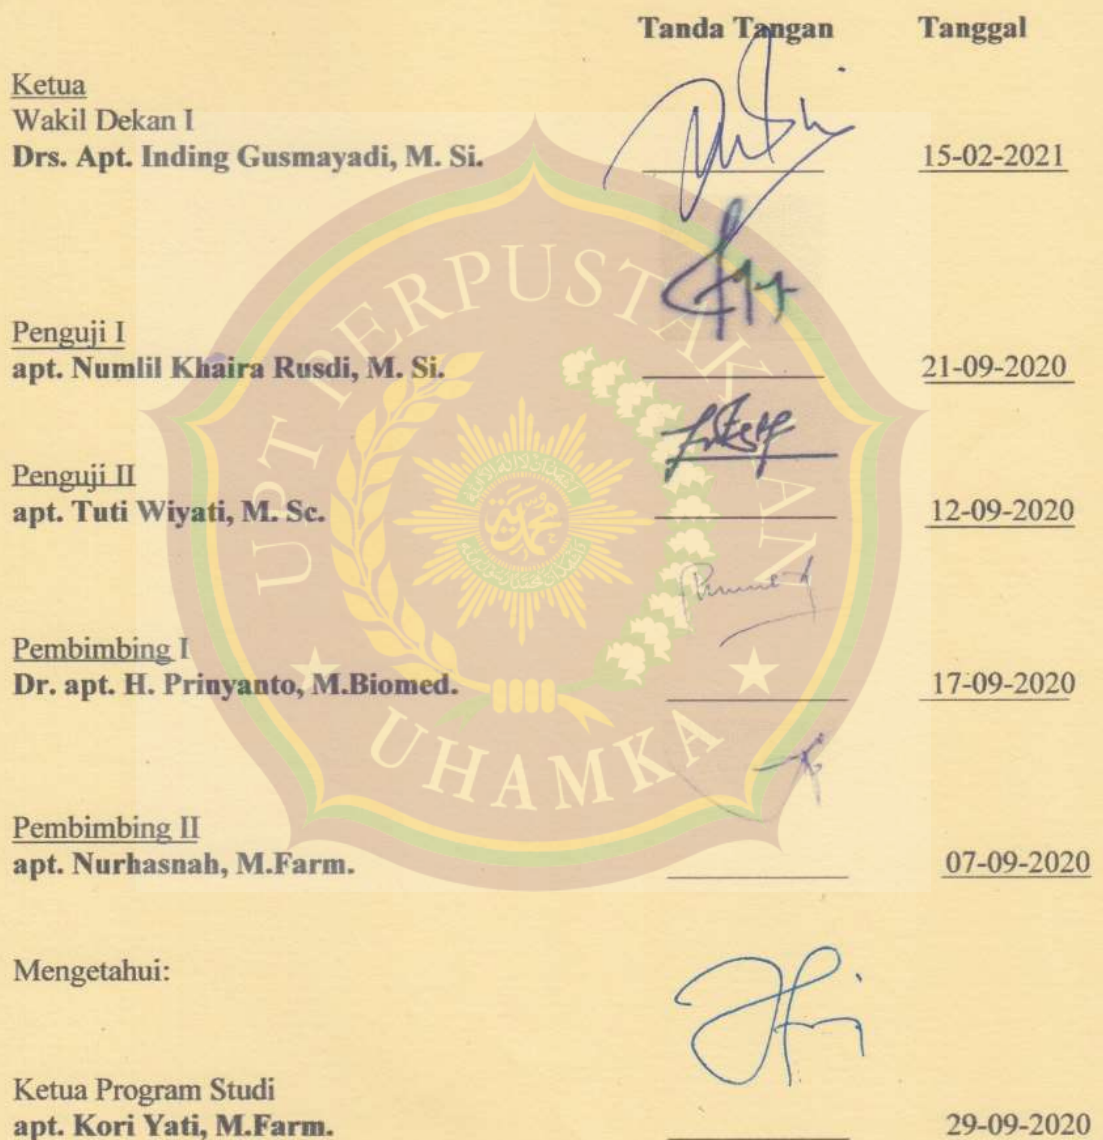 Tanda Tangan Tanggal
Ketua
Wakil Dekan I
Drs. Apt. Inding Gusmayadi, M. Si. 15-02-2021
Penguji I
apt. Numlil Khaira Rusdi, M. Si. 21-09-2020
Penguji II
apt. Tuti Wiyati, M. Sc. 12-09-2020
Pembimbing I
Dr. apt. H. Prinyanto, M.Biomed. 17-09-2020
Pembimbing II
apt. Nurhasnah, M.Farm. 07-09-2020
Mengetahui:
Ketua Program Studi
apt. Kori Yati, M.Farm. 29-09-2020
UPT PERPUSTAKAAN
UHAMKA